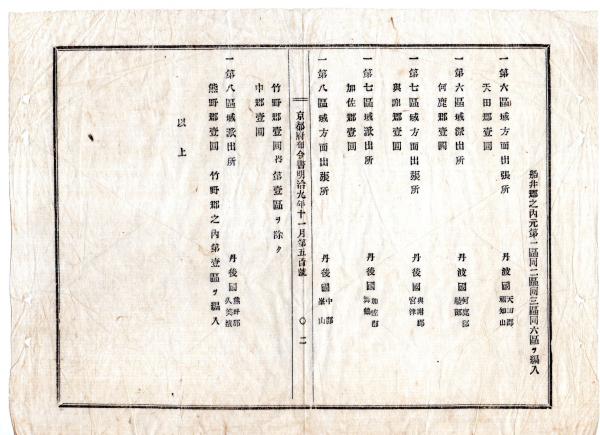 船井郡之內元第一區同二區同三區同六區ヲ編入
一第六區域方面出張所　丹波國 天田郡 福知山
天田郡壹圓
一第六區域派出所　丹波國 何鹿郡 綾部
何鹿郡壹圓
一第七區域方面出張所　丹後國 與謝郡 宮津
與謝郡壹圓
一第七區域派出所　丹後國 加佐郡 舞鶴
加佐郡壹圓
一第八區域方面出張所　丹後國 中郡 峯山
京都府布令書明治九年十一月第五百號　〇二
中郡壹圓
竹野郡壹圓 第壹區ヲ除ク
一第八區域派出所　丹後國 熊野郡 久美濱
熊野郡壹圓　竹野郡之內第壹區ヲ編入
以上